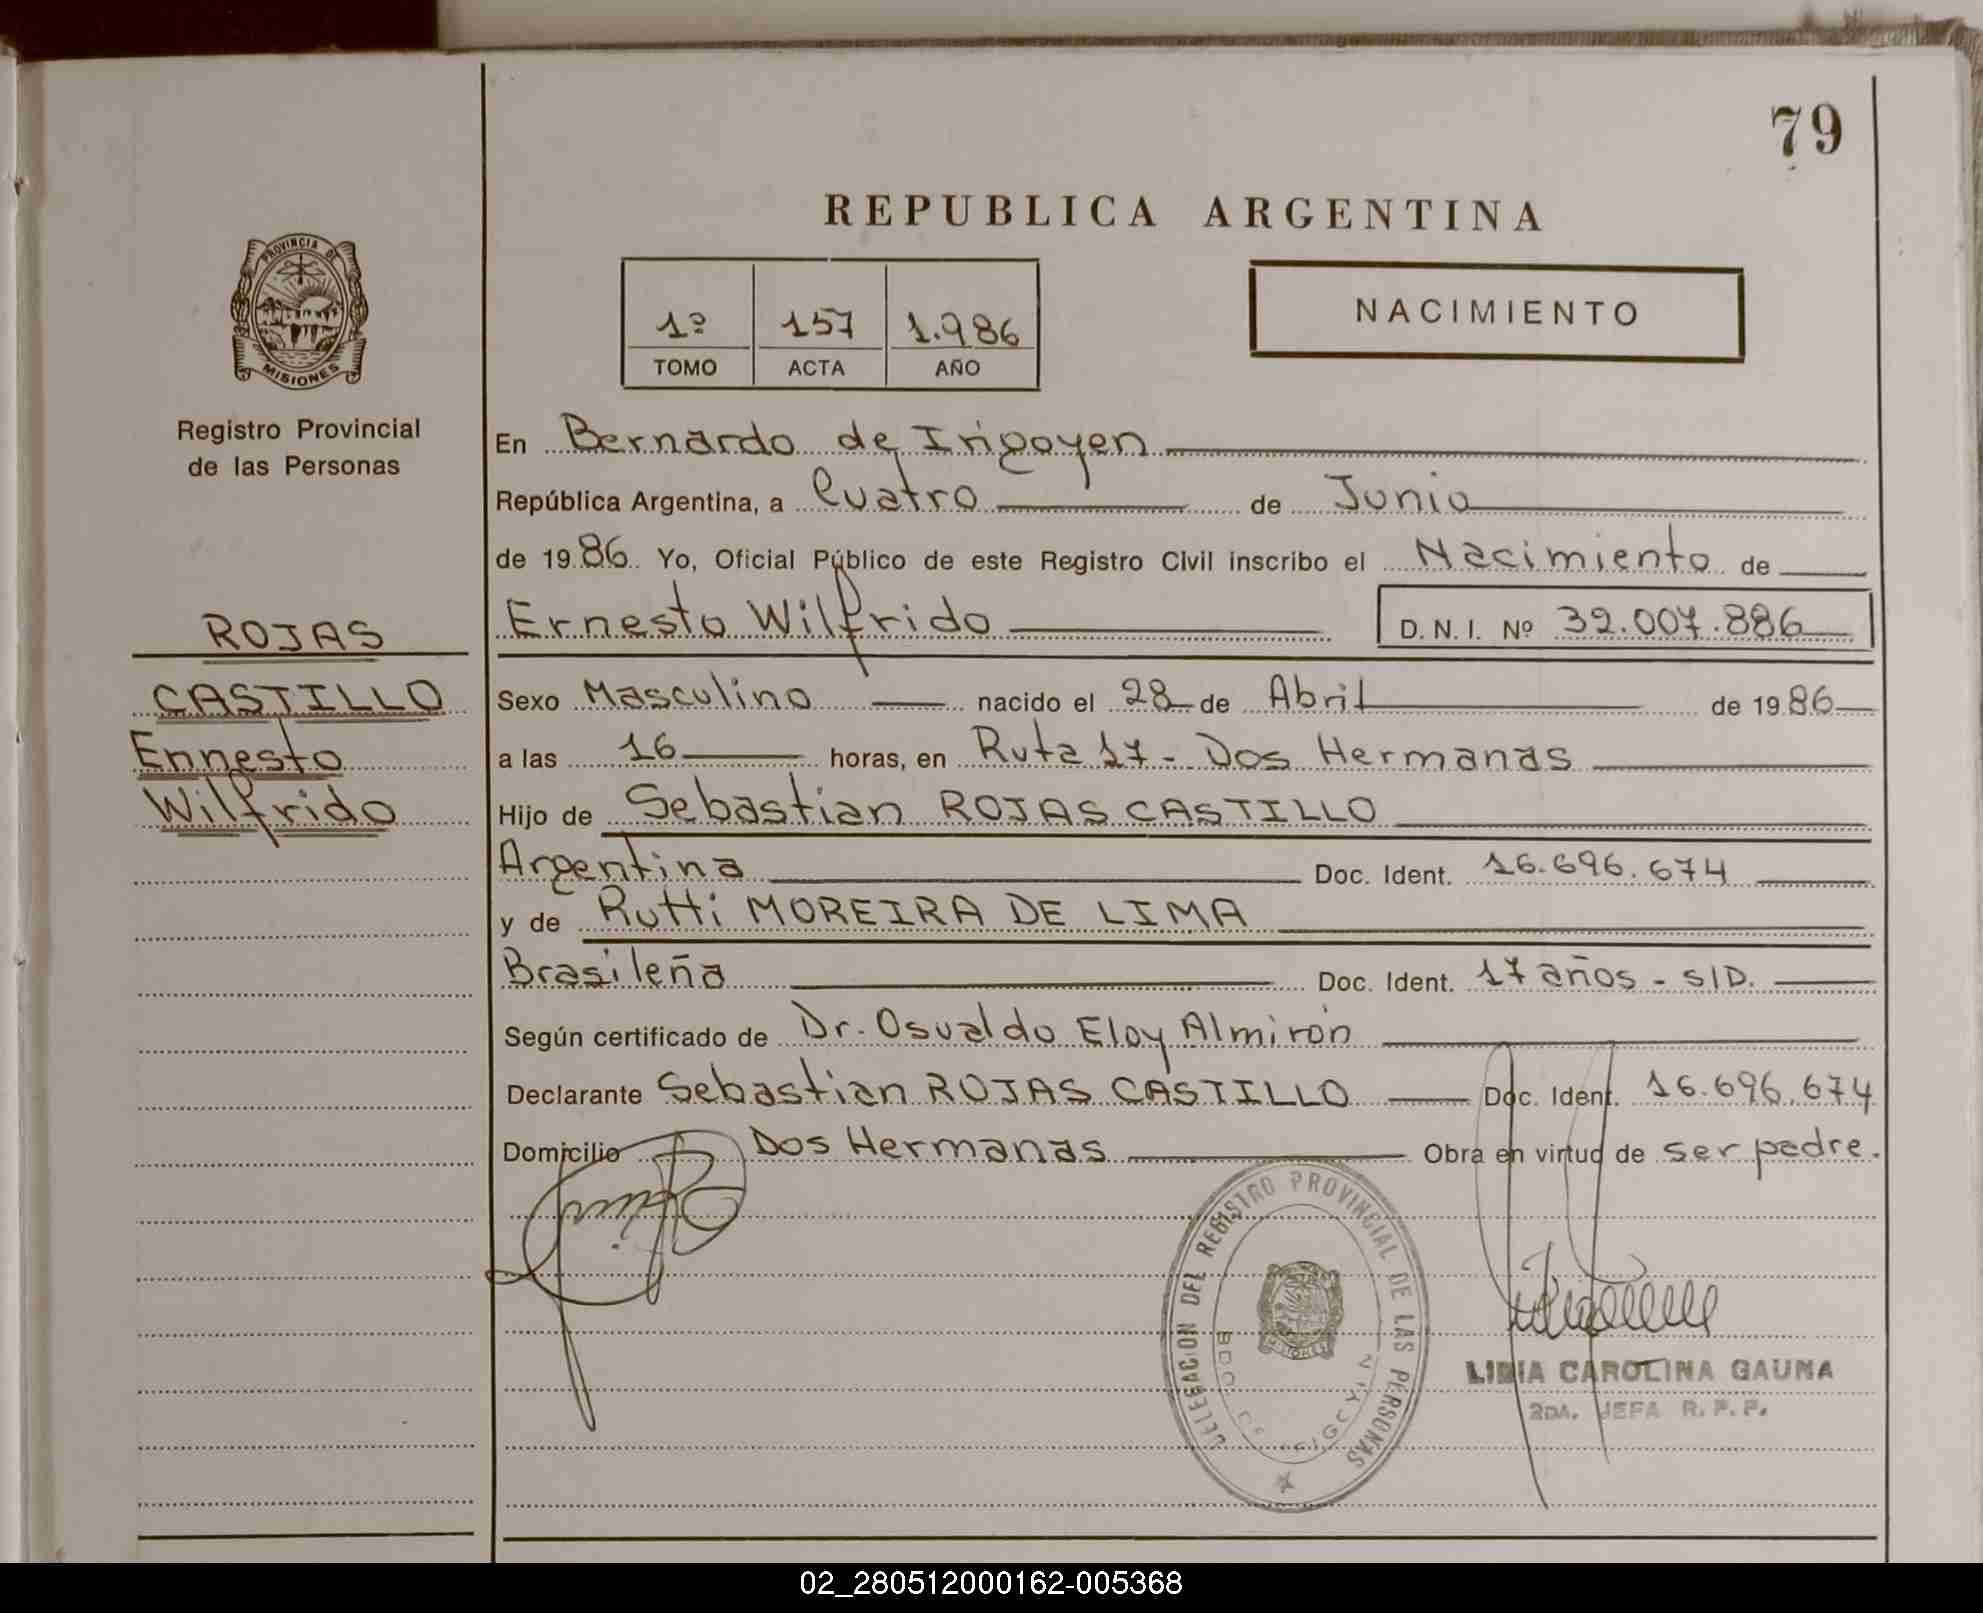 79
REPUBLICA ARGENTINA
PROVINCIA DE
MISIONES
1º 157 1.986
TOMO ACTA AÑO
NACIMIENTO
Registro Provincial
de las Personas
ROJAS
CASTILLO
Ennesto
Wilfrido
En Bernardo de Irigoyen
República Argentina, a Cuatro de Junio
de 1986. Yo, Oficial Público de este Registro Civil inscribo el Nacimiento de
Ernesto Wilfrido D. N. I. Nº 32.007.886
Sexo Masculino nacido el 28 de Abril de 1986
a las 16 horas, en Ruta 17 - Dos Hermanas
Hijo de Sebastian ROJAS CASTILLO
Argentina Doc. Ident. 16.696.674
y de Rutti MOREIRA DE LIMA
Brasileña Doc. Ident. 17 años - S/D.
Según certificado de Dr. Osvaldo Eloy Almirón
Declarante Sebastian ROJAS CASTILLO Doc. Ident. 16.696.674
Domicilio Dos Hermanas Obra en virtud de ser padre.
DELEGACION DEL REGISTRO PROVINCIAL DE LAS PERSONAS
MISIONES
LIDIA CAROLINA GAUNA
2DA. JEFA R. P. P.
02_280512000162-005368